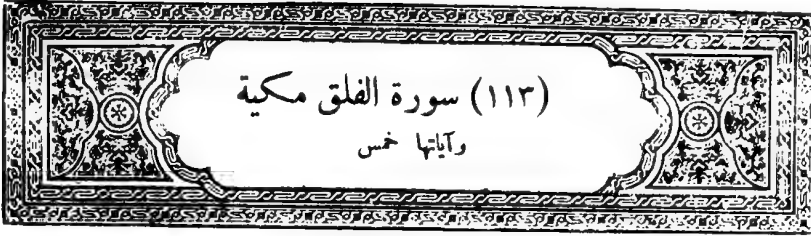 (١١٣) سورة الفلق مكية
وآياتها خمس